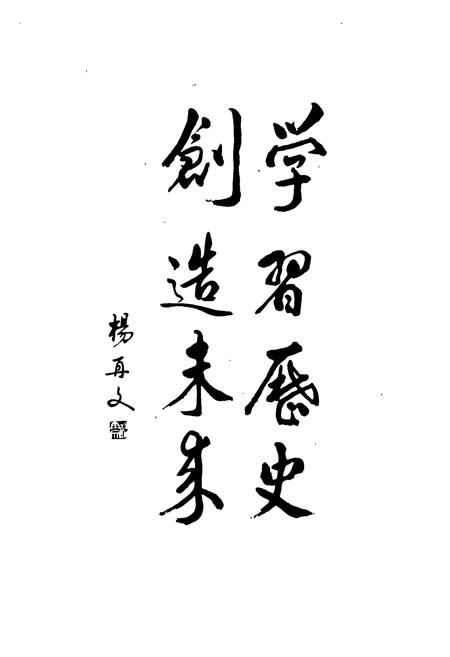 学習歷史
創造未来
楊再文